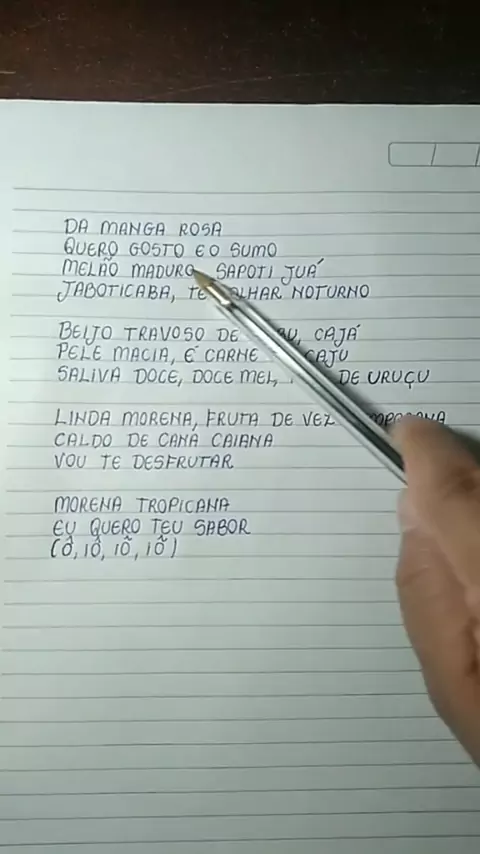 DA MANGA ROSA
QUERO GOSTO E O SUMO
MELÃO MADURO, SAPOTI JUÁ
JABOTICABA, TE OLHAR NOTURNO
BEIJO TRAVOSO DE CAJÁ
PELE MACIA, É CARNE CAJU
SALIVA DOCE, DOCE MEL, DE URUÇU
LINDA MORENA, FRUTA DE VEZ
CALDO DE CANA CAIANA
VOU TE DESFRUTAR
MORENA TROPICANA
EU QUERO TEU SABOR
(Ô, IÔ, IÔ, IÔ)